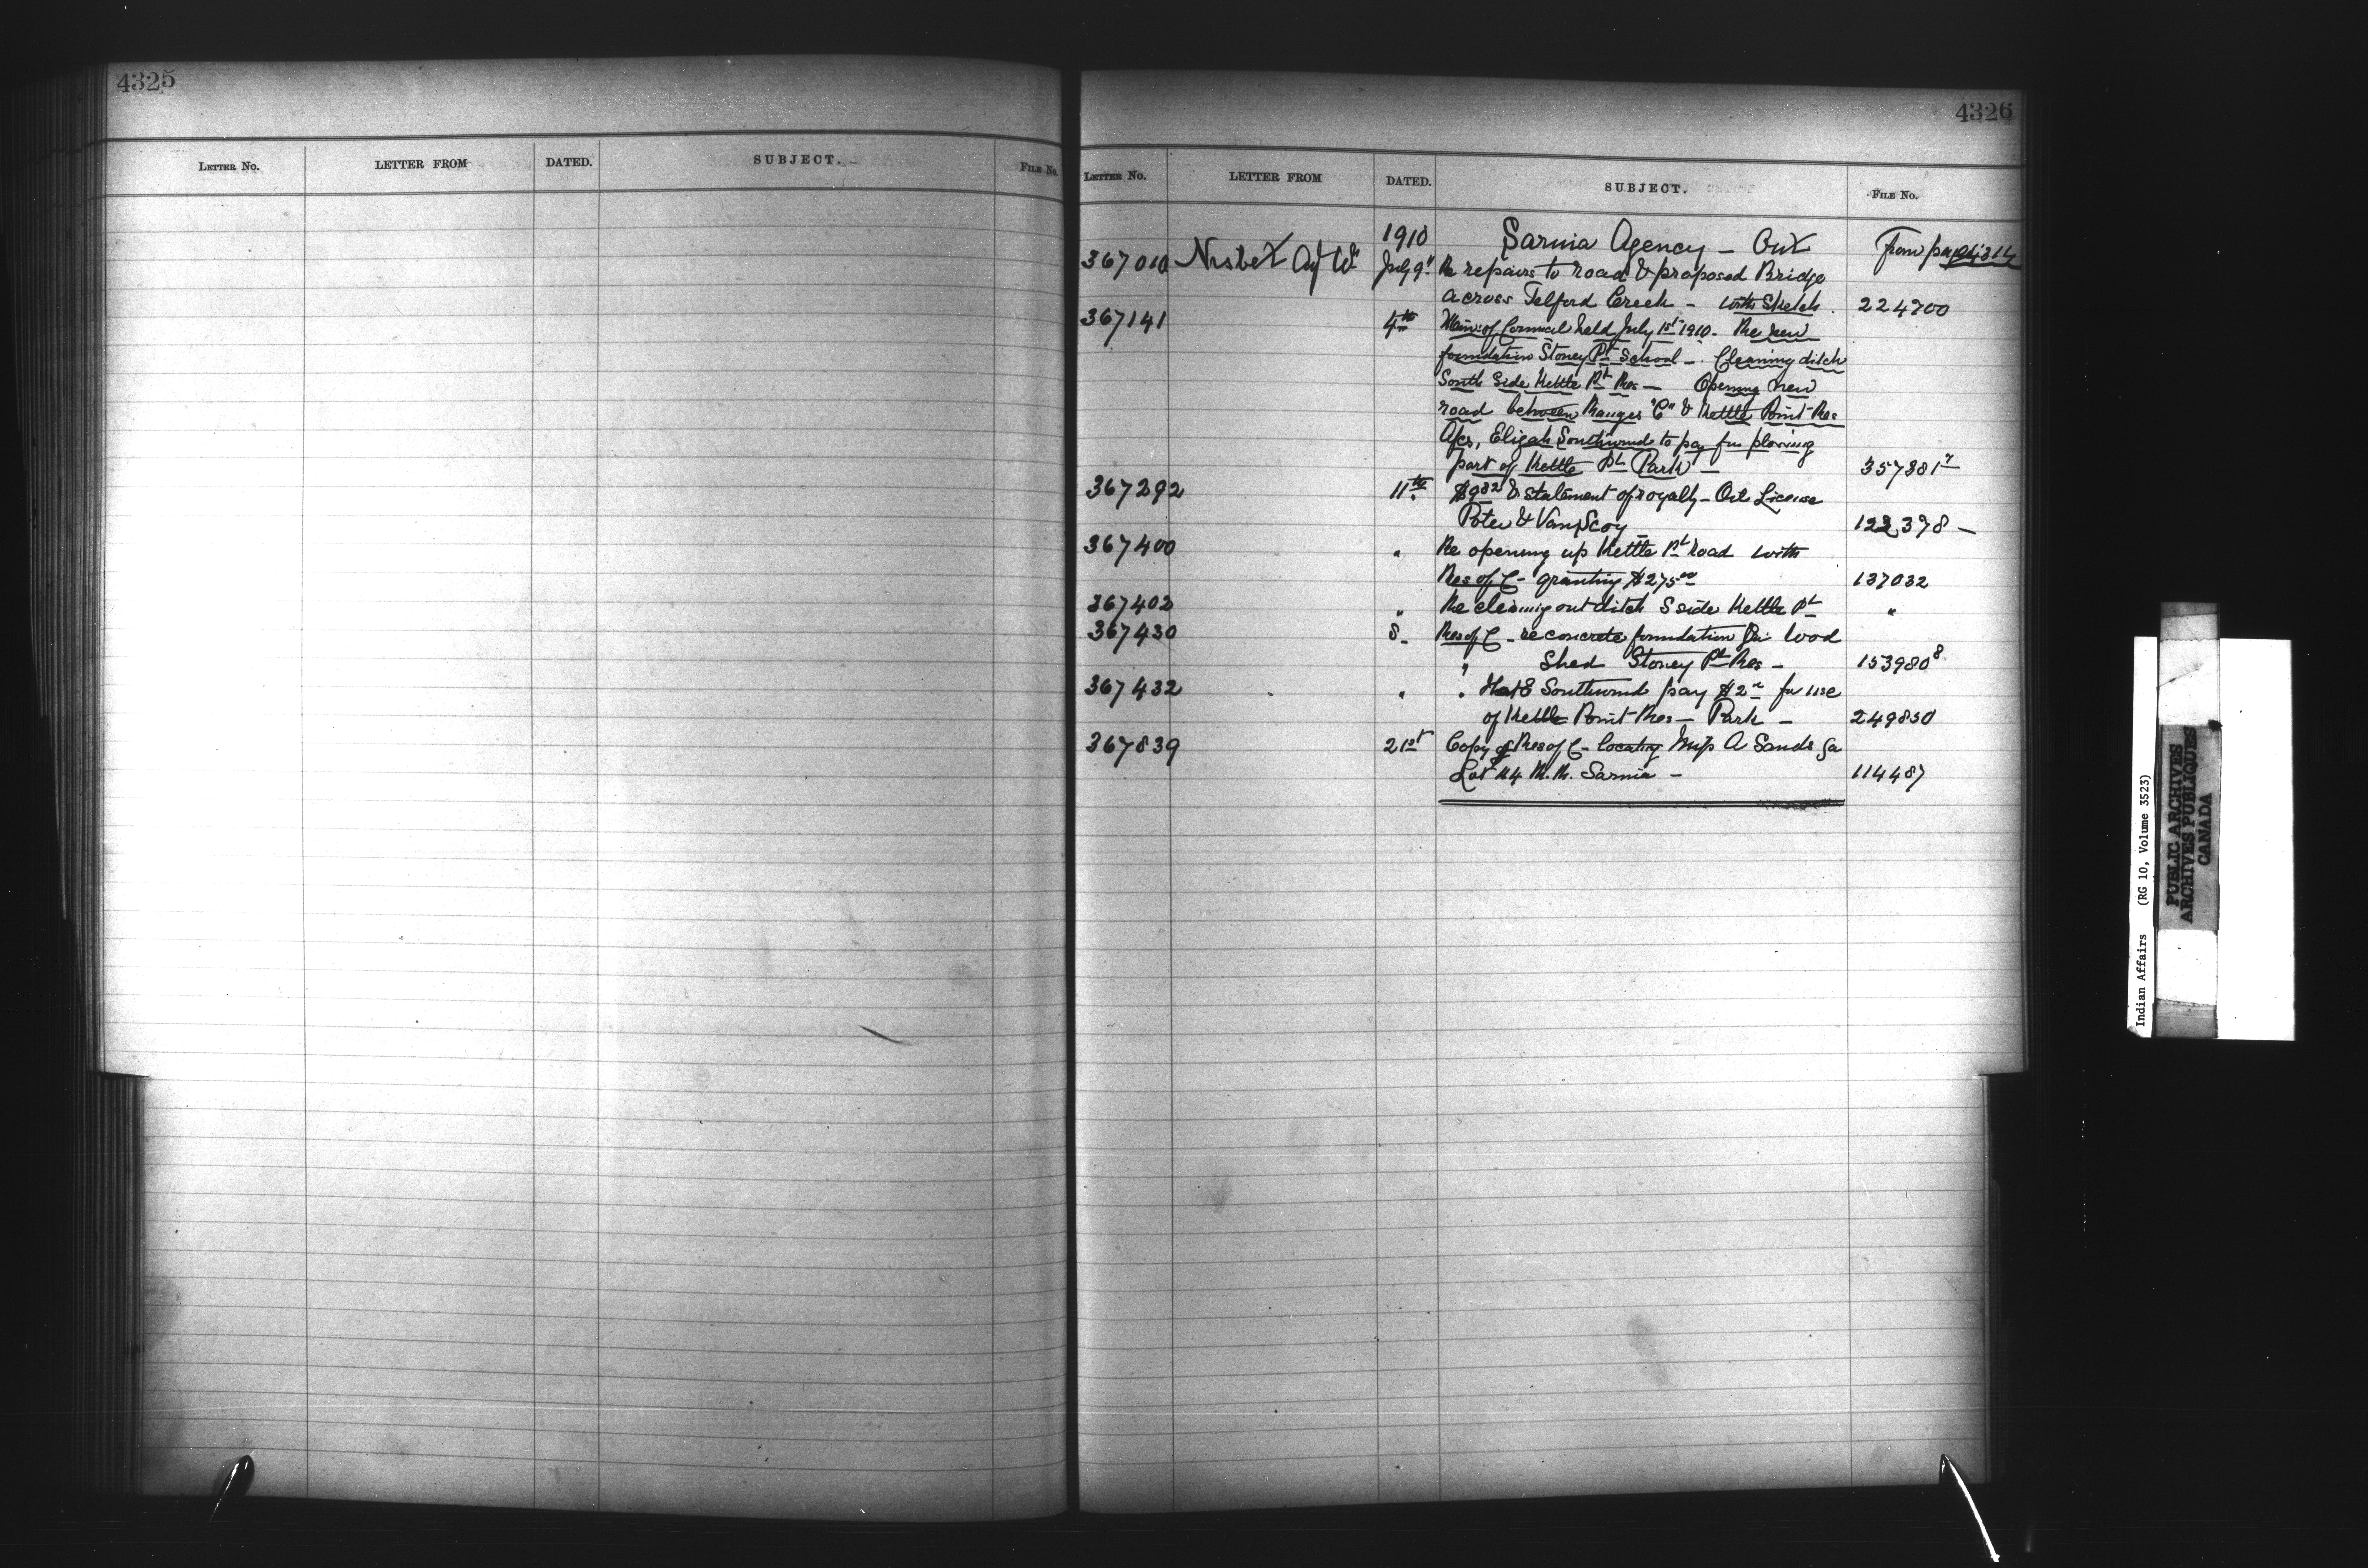 4325
LETTER NO. LETTER FROM DATED. SUBJECT. FILE NO.
4326
LETTER NO. LETTER FROM DATED. SUBJECT. FILE NO.
1910 Sarnia Agency — Ont From page 4314
367010 Nisbet July 9" Re repairs to road & proposed Bridge
across Telford Creek — with Sketch. 224700
367141 4th Min. of Council held July 1st 1910. Re new
foundation Stoney Pt School — Cleaning ditch
South Side Kettle Pt Res — Opening new
road between Ranges "C" & Kettle Point Res
Elijah Southwind to pay for plowing
part of Kettle Pt Park — 357381
367292 11th $9.82 & statement of royalty — Oil License
122398 —
367400 " Re opening up Kettle Pt Road with
Res of C — granting $275.00 137032
367402 " Re cleaning out ditch S side Kettle Pt "
367430 8 — Res of C — re concrete foundation for Wood
" Shed Stoney Pt Res — 153980 8
367432 " " that E Southwind pay $2 for use
of Kettle Point Res — Park — 249850
367839 21st Copy of Res of C — locating Mrs A Sands
Lot R.R. Sarnia — 114487
Indian Affairs (RG 10, Volume 3523)
PUBLIC ARCHIVES
ARCHIVES PUBLIQUES
CANADA